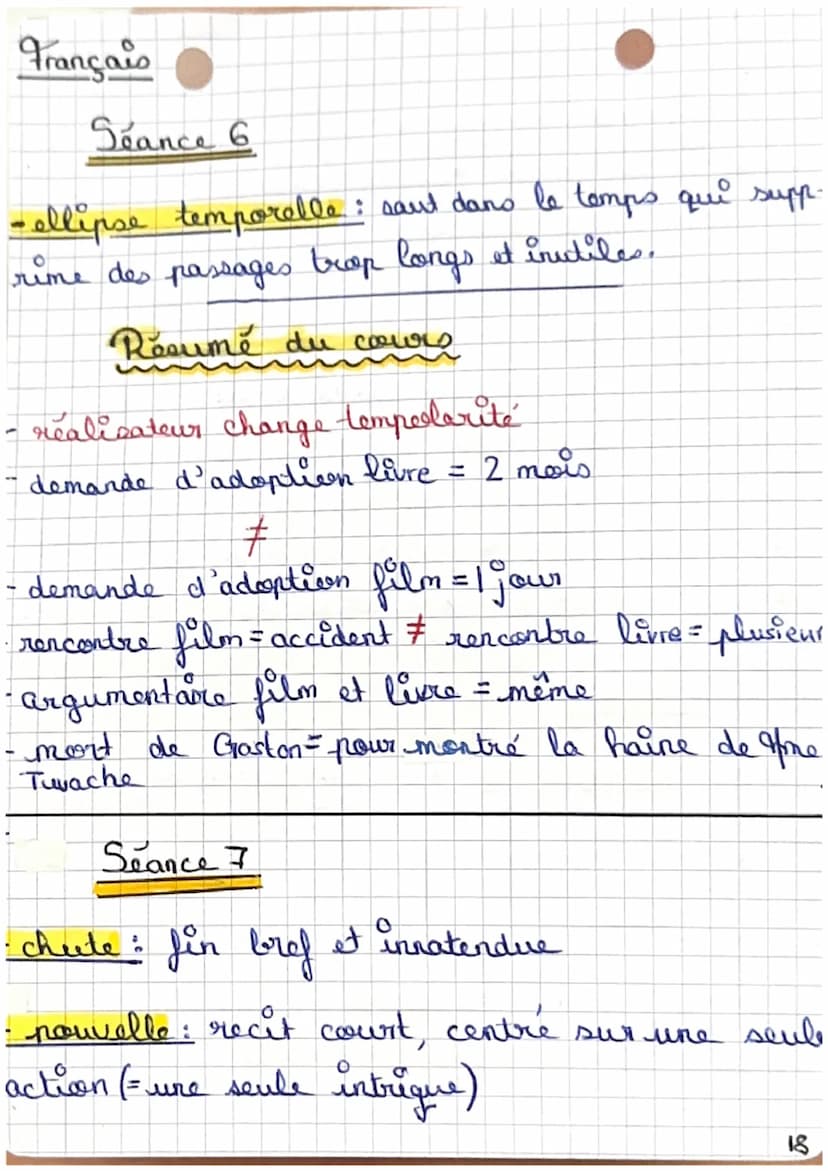 Français
Séance 6
-ellipse temporelle : saut dans le temps qui supp-
rime des passages trop longs et inutiles.
Résumé du cours
- réalisateur change tempolarité
- demande d'adoption livre = 2 mois
≠
- demande d'adoption film = 1 jour
· rencontre film = accident ≠ rencontre livre = plusieur
· argumentaire film et livre = même
- mort de Gaston = pour montré la haine de Mme
Tuvache
Séance 7
- chute : fin bref et innatendue
- nouvelle : recit court, centré sur une seule
action (= une seule intrigue)
18